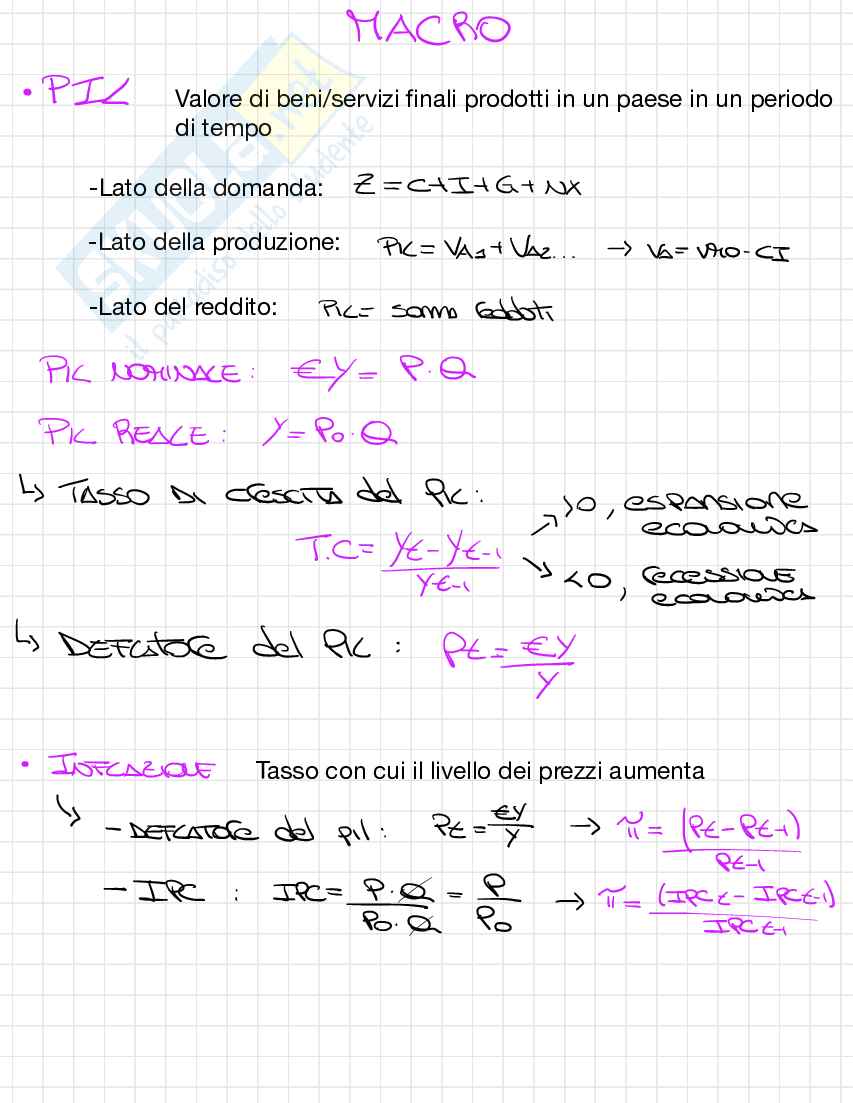 MACRO
• PIL Valore di beni/servizi finali prodotti in un paese in un periodo
di tempo
-Lato della domanda: Z = C+I+G+NX
-Lato della produzione: PIL = VA1 + VA2... → VA = VAlO - CI
-Lato del reddito: PIL = somma redditi
PIL NOMINALE: €Y = P·Q
PIL REALE: Y = P0·Q
↳ TASSO DI CRESCITA del PIL:
>0, espansione
economica
T.C = Yt - Yt-1 / Yt-1
<0, recessione
economica
↳ DEFLATORE del PIL: Pt = €Y / Y
• INFLAZIONE Tasso con cui il livello dei prezzi aumenta
↳ - DEFLATORE del pil: Pt = €Y / Y → π = (Pt - Pt-1) / Pt-1
- IPC: IPC = P·Q / P0·Q = P / P0 → π = (IPCt - IPCt-1) / IPCt-1
SKUOLA.net
il paradiso dello studente